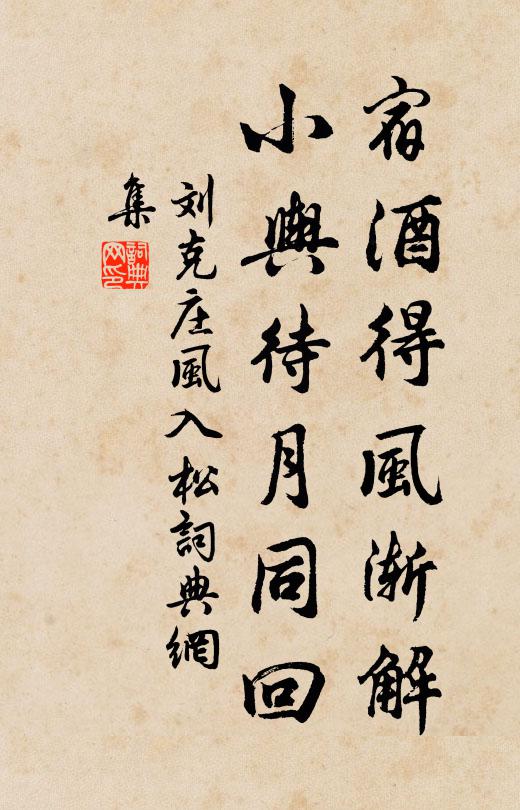 宿酒得風漸解
小輿待月同回
刘克庄風入松詞典網
集
詞典
网印